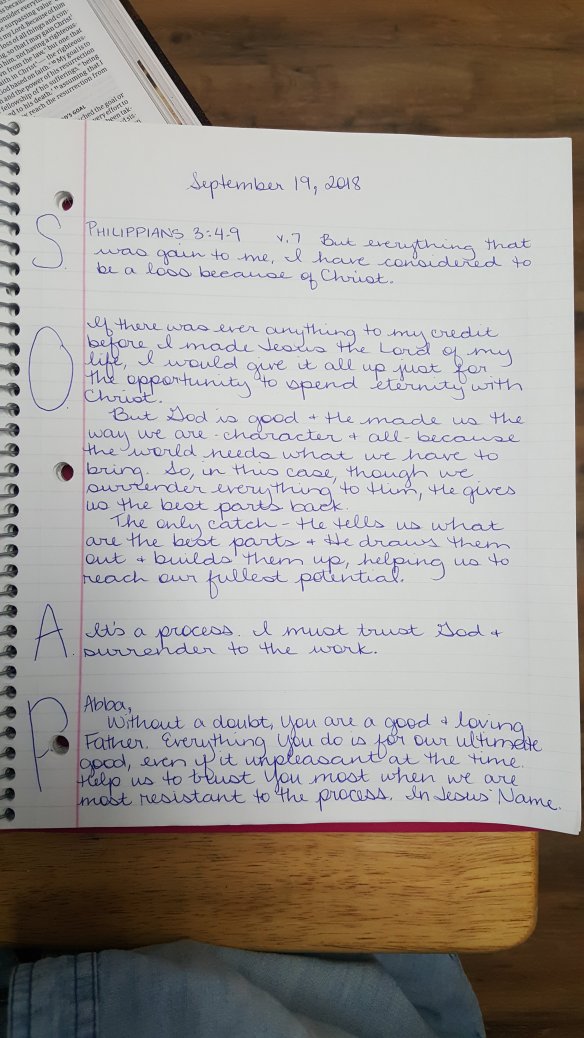 September 19, 2018
S. PHILIPPIANS 3:4-9 v.7 But everything that
was gain to me, I have considered to
be a loss because of Christ.
O. If there was ever anything to my credit
before I made Jesus the Lord of my
life, I would give it all up just for
the opportunity to spend eternity with
Christ.
But God is good + He made us the
way we are - character + all - because
the world needs what we have to
bring. So, in this case, though we
surrender everything to Him, He gives
us the best parts back.
The only catch - He tells us what
are the best parts + He draws them
out + builds them up, helping us to
reach our fullest potential.
A. It's a process. I must trust God +
surrender to the work.
P. Abba,
Without a doubt, You are a good + loving
Father. Everything You do is for our ultimate
good, even if it unpleasant at the time.
Help us to trust You most when we are
most resistant to the process. In Jesus' Name.